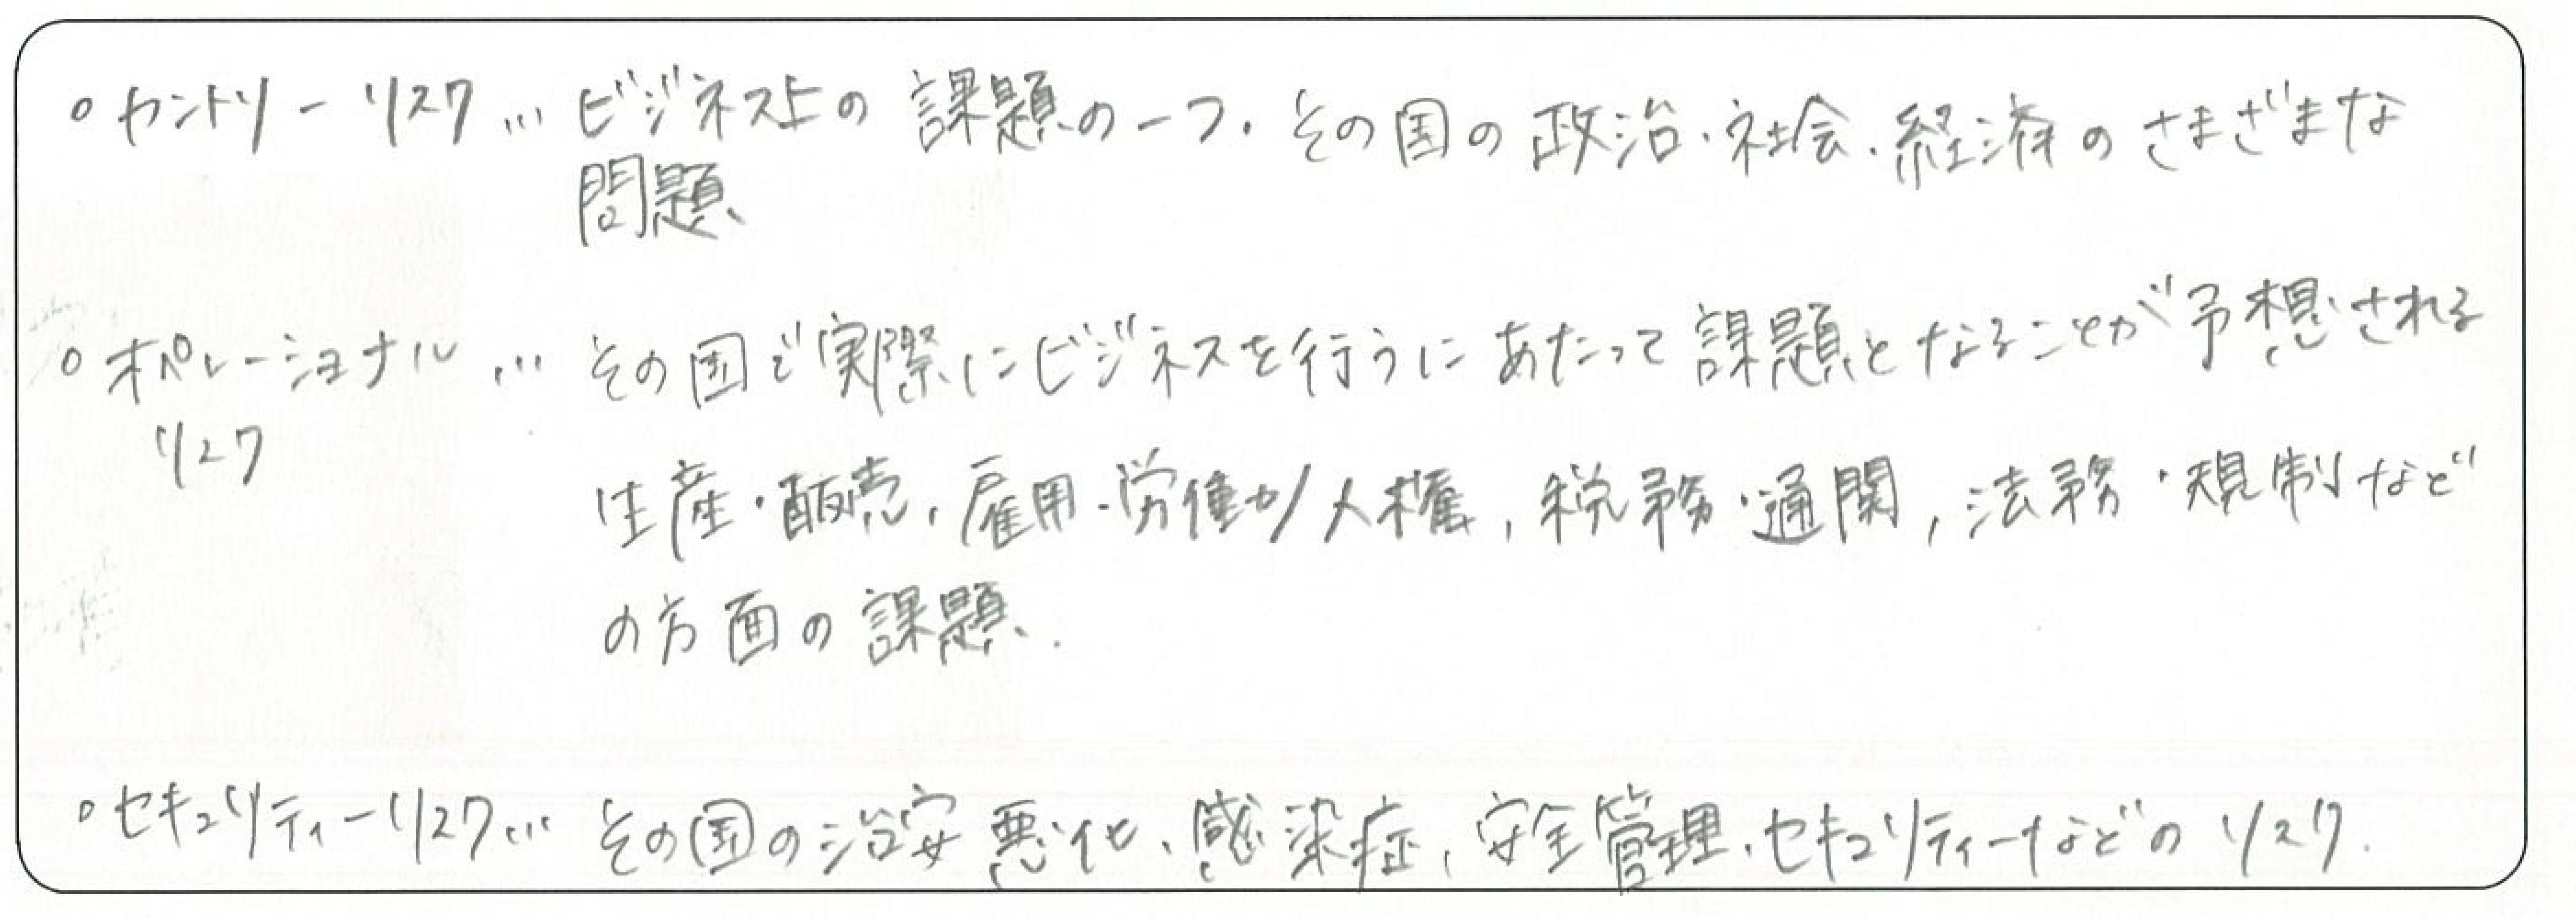 ○カントリーリスク… ビジネス上の課題の一つ。その国の政治・社会・経済のさまざまな
問題
○オペレーショナル… その国で実際にビジネスを行うにあたって課題となることが予想される
リスク
生産・販売、雇用・労働力/人権、税務・通関、法務・規制など
の方面の課題.
○セキュリティーリスク… その国の治安悪化、感染症、安全管理、セキュリティーなどのリスク.